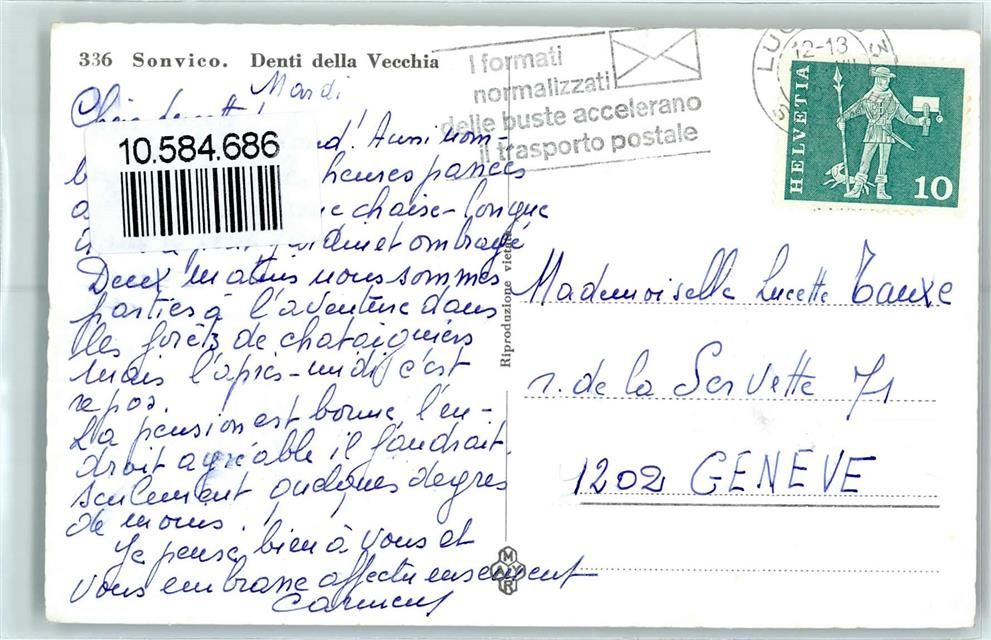 336 Sonvico. Denti della Vecchia
Mardi
10.584.686
d! Aussi nom-
b heures passées
a e chaise-longue
jardin et ombragé
Deux matins nous sommes
parties à l'aventure dans
les forêts de chataigniers
mais l'après-midi c'est
repos.
La pension est bonne, l'en-
droit agréable il faudrait
seulement quelques degrés
de moins.
Je pense bien à vous et
vous embrasse affectueusement
Carmen
Riproduzione vietata
MAYR
I formati
normalizzati
delle buste accelerano
il trasporto postale
LUG
12-13
HELVETIA
10
Mademoiselle Lucette Tauxe
r. de la Servette 71
1202 GENEVE